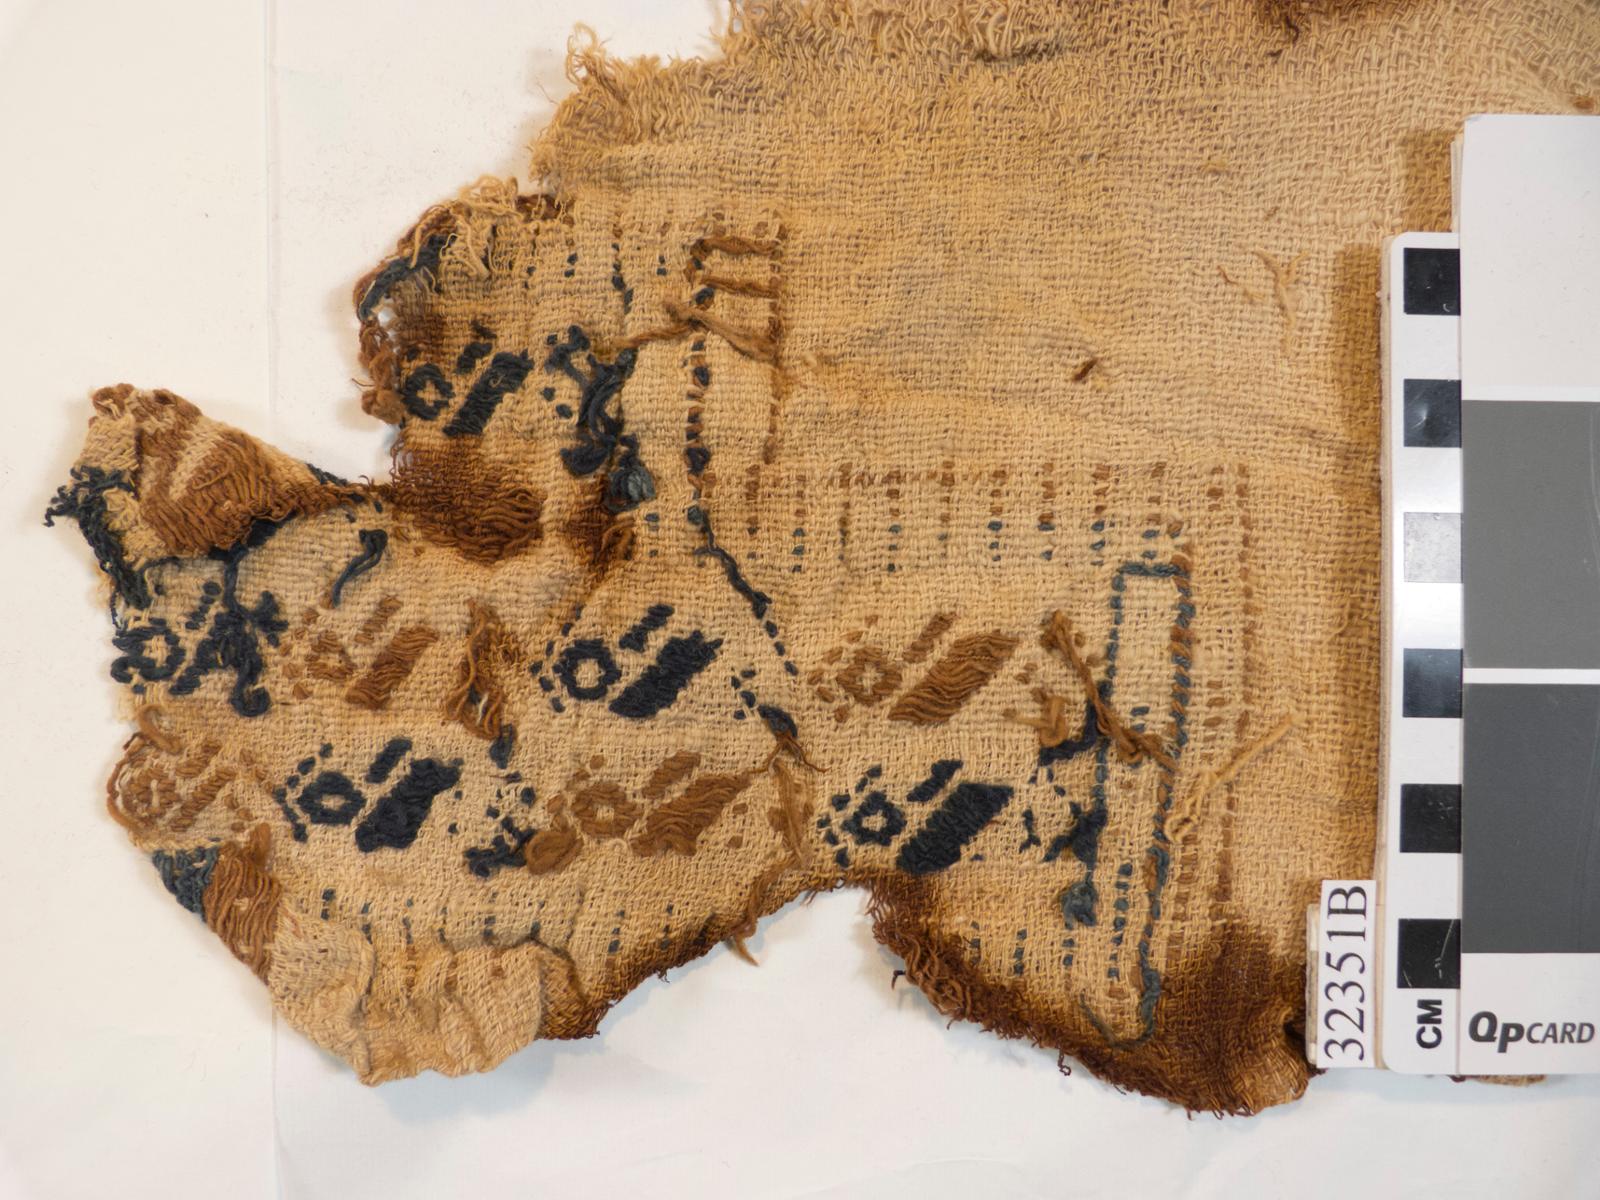 32351B
CM
QPCARD